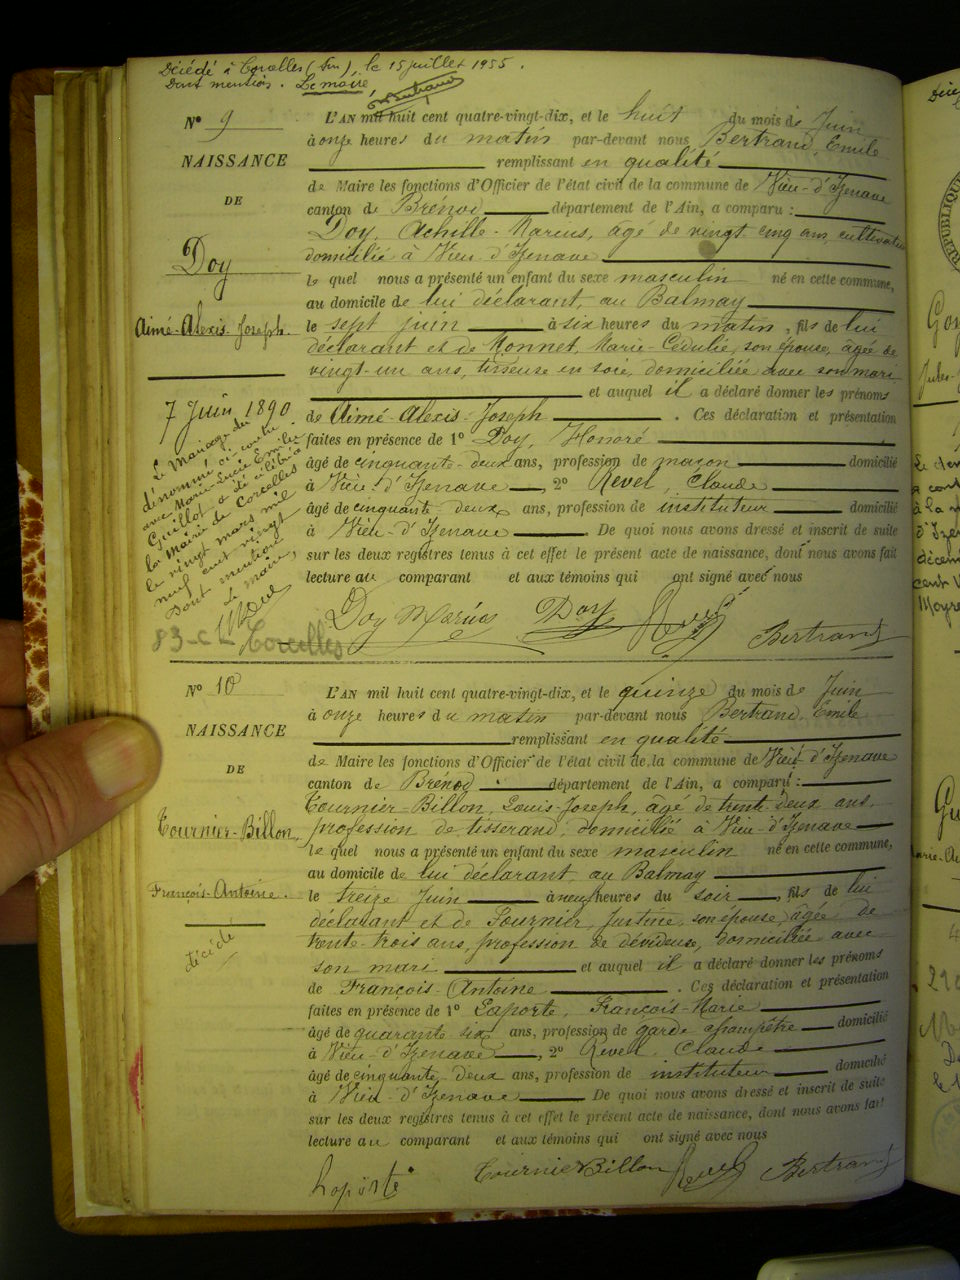 Décédé à Corcelles (Ain), le 15 juillet 1955.
Dont mention. Le maire,
N° 9
NAISSANCE
DE
Doy
Aimé-Alexis-Joseph.
L'AN mil huit cent quatre-vingt-dix, et le huit du mois de Juin
à onze heures du matin par-devant nous Bertrand, Emile
remplissant en qualité
de Maire les fonctions d'Officier de l'état civil de la commune de Vieu-d'Izenave
canton de Brénod département de l'Ain, a comparu :
Doy, Achille-Marius, âgé de vingt cinq ans, cultivateur
domicilié à Vieu-d'Izenave
le quel nous a présenté un enfant du sexe masculin né en cette commune,
au domicile de lui déclarant, au Balmay
le sept juin à six heures du matin, fils de lui
déclarant et de Monnet, Marie-Cédulie, son épouse, âgée de
vingt-un ans, tisseuse en soie, domiciliée avec son mari
et auquel il a déclaré donner les prénoms
de Aimé-Alexis-Joseph. Ces déclaration et présentation
faites en présence de 1° Doy, Honoré
âgé de cinquante-deux ans, profession de maçon domicilié
à Vieu-d'Izenave, 2° Revel, Claude
âgé de cinquante deux ans, profession de instituteur domicilié
à Vieu-d'Izenave. De quoi nous avons dressé et inscrit de suite
sur les deux registres tenus à cet effet le présent acte de naissance, dont nous avons fait
lecture au comparant et aux témoins qui ont signé avec nous
Doy Marius Doy Revel Bertrand
7 Juin 1890
Le Mariage du
dénommé ci-contre
avec Marie-Lucie Emilie
Guillot a été célébré à
la Mairie de Corcelles
le vingt mars mil
neuf cent vingt
Dont mention
Le maire,
83-CL Corcelles
N° 10
NAISSANCE
DE
Tournier-Billon,
François-Antoine.
décédé
L'AN mil huit cent quatre-vingt-dix, et le quinze du mois de Juin
à onze heures du matin par-devant nous Bertrand, Emile
remplissant en qualité
de Maire les fonctions d'Officier de l'état civil de la commune de Vieu-d'Izenave
canton de Brénod département de l'Ain, a comparu :
Tournier-Billon, Louis-Joseph, âgé de trente deux ans,
profession de tisserand, domicilié à Vieu-d'Izenave
le quel nous a présenté un enfant du sexe masculin né en cette commune,
au domicile de lui déclarant au Balmay
le treize Juin à neuf heures du soir, fils de lui
déclarant et de Fournier, Justine, son épouse, âgée de
trente-trois ans, profession de dévideuse, domiciliée avec
son mari et auquel il a déclaré donner les prénoms
de François-Antoine. Ces déclaration et présentation
faites en présence de 1° Laporte, François-Marie
âgé de quarante six ans, profession de garde champêtre domicilié
à Vieu-d'Izenave, 2° Revel, Claude
âgé de cinquante deux ans, profession de instituteur domicilié
à Vieu-d'Izenave De quoi nous avons dressé et inscrit de suite
sur les deux registres tenus à cet effet le présent acte de naissance, dont nous avons fait
lecture au comparant et aux témoins qui ont signé avec nous
Laporte Tournier Billon Revel Bertrand